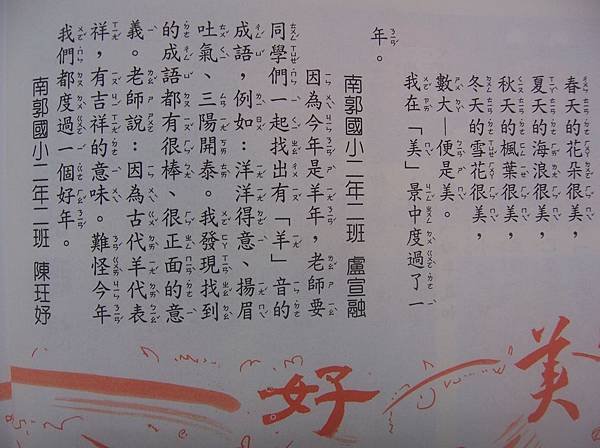 春天的花朵很美，
夏天的海浪很美，
秋天的楓葉很美，
冬天的雪花很美，
數大—便是美。
我在「美」景中度過了一
年。
南郭國小二年二班　盧宣融
因為今年是羊年，老師要
同學們一起找出有「羊」音的
成語，例如：洋洋得意、揚眉
吐氣、三陽開泰。我發現找到
的成語都有很棒、很正面的意
義。老師說：因為古代羊代表
祥，有吉祥的意味。難怪今年
我們都度過一個好年。
南郭國小二年二班　陳玨妤
美
好